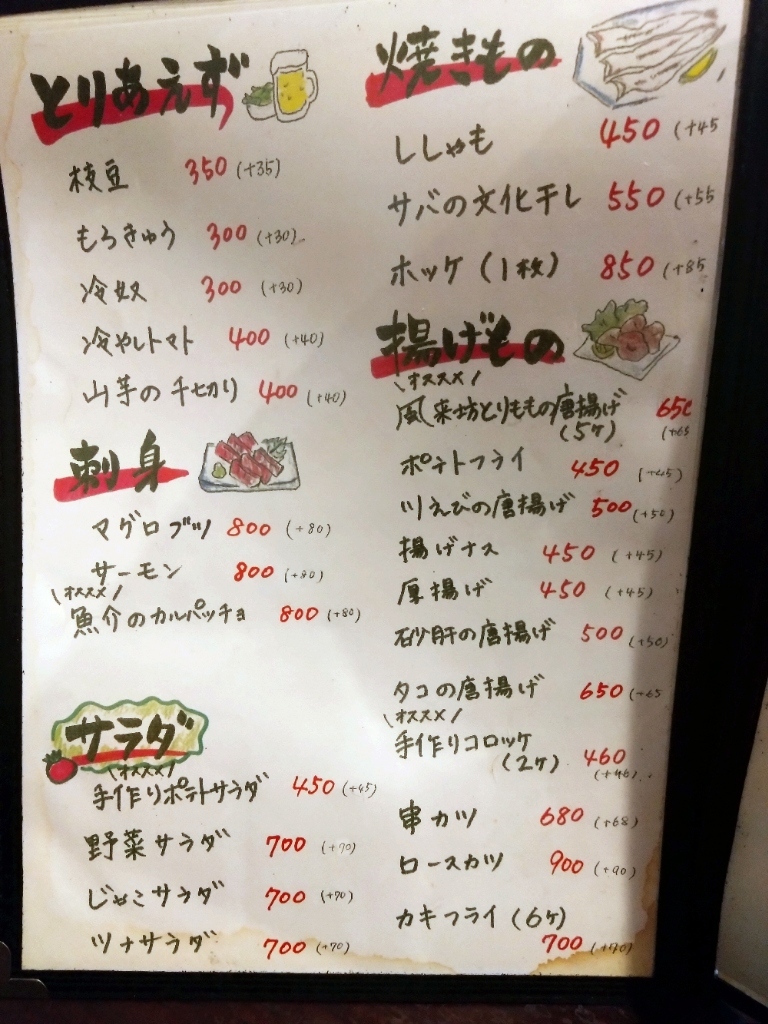 とりあえず
枝豆 350 (+35)
もろきゅう 300 (+30)
冷奴 300 (+30)
冷やしトマト 400 (+40)
山芋の千切り 400 (+40)
刺身
マグロブツ 800 (+80)
サーモン 800 (+80)
\オススメ/
魚介のカルパッチョ 800 (+80)
サラダ
\オススメ/
手作りポテトサラダ 450 (+45)
野菜サラダ 700 (+70)
じゃこサラダ 700 (+70)
ツナサラダ 700 (+70)
焼きもの
ししゃも 450 (+45
サバの文化干し 550 (+55
ホッケ(1枚) 850 (+85
揚げもの
\オススメ/
風来坊とりももの唐揚げ 650
(5ヶ) (+65
ポテトフライ 450 (+45)
川えびの唐揚げ 500 (+50)
揚げナス 450 (+45)
厚揚げ 450 (+45)
砂肝の唐揚げ 500 (+50)
タコの唐揚げ 650 (+65
\オススメ/
手作りコロッケ 460
(2ヶ) (+46)
串カツ 680 (+68)
ロースカツ 900 (+90)
カキフライ(6ヶ)
700 (+70)